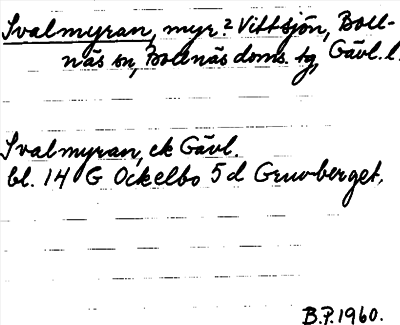 Svalmyran, myr? Vittsjön, Boll-
näs sn, Bollnäs doms. tg, Gävl. l.
Svalmyran, ek Gävl.
bl. 14 G Ockelbo 5 d Gruvberget.
B.P. 1960.